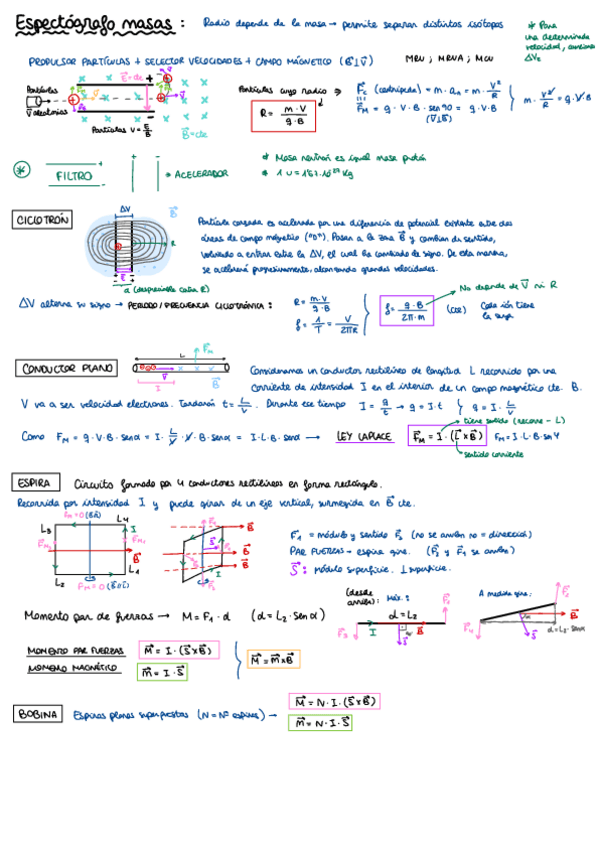 Espectógrafo masas: Radio depende de la masa → permite separar distintos isótopos
* Para una determinada velocidad, cambiamos ΔVz
PROPULSOR PARTÍCULAS + SELECTOR VELOCIDADES + CAMPO MAGNÉTICO (B⊥V) MRU ; MRUA ; MCU
Partículas
V aleatorias
E = cte
Partículas V = E/B
B = cte
Partículas cuyo radio → R = m·V / q·B
Fc (centrípeta) = m·an = m· V²/R
FM = q·V·B·sen 90 = q·V·B
(V⊥B)
m· V²/R = q·V·B
* FILTRO → ACELERADOR
* Masa neutrón es igual masa protón
* 1 u = 1'67·10⁻²⁷ Kg
CICLOTRÓN
ΔV
B
R
E
d (despreciable con R)
Partícula cargada es acelerada por una diferencia de potencial existente entre dos
áreas de campo magnético ("D"). Pasan a la zona B y cambian de sentido,
volviendo a entrar entre la ΔV, el cual ha cambiado de signo. De esta manera,
se acelerará progresivamente, alcanzando grandes velocidades.
ΔV alterna su signo → PERIODO/FRECUENCIA CICLOTRÓNICA:
R = m·V / q·B
f = 1/T = V / 2πR
f = q·B / 2π·m (cte)
No depende de V ni R
Cada ión tiene la suya
CONDUCTOR PLANO
L
FM
V
I
B
Consideramos un conductor rectilíneo de longitud L recorrido por una
corriente de intensidad I en el interior de un campo magnético cte. B.
V va a ser velocidad electrones. Tardarán t = L/V. Durante ese tiempo I = q/t → q = I·t } q = I· L/V
Como FM = q·V·B·senα = I· L/V ·V·B·senα = I·L·B·senα → LEY LAPLACE FM = I·(L×B) FM = I·L·B·sen
tiene sentido (recorre - L)
sentido corriente
ESPIRA Circuito formado por 4 conductores rectilíneos en forma rectángulo.
Recorrida por intensidad I y puede girar de un eje vertical, sumergida en B cte.
FM = 0 (B∥I)
L3
L4
I
B
L2
L1
FM = 0 (B∥I)
B
B
B
S
F1 = módulo y sentido F3 (no se anulan no = dirección)
PAR FUERZAS → espira gire. (F2 y F4 se anulan)
S: módulo superficie. ⊥ superficie.
Momento par de fuerzas → M = F1·d (d = L2·Sen α)
(desde arriba): Máx:
d = L2
I
B
S
A medida gira:
B
S
d = L2·senα
MOMENTO PAR FUERZAS M = I·(S×B)
MOMENTO MAGNÉTICO m = I·S
M = m×B
BOBINA Espiras planas superpuestas (N = Nº espiras) →
M = N·I·(S×B)
m = N·I·S